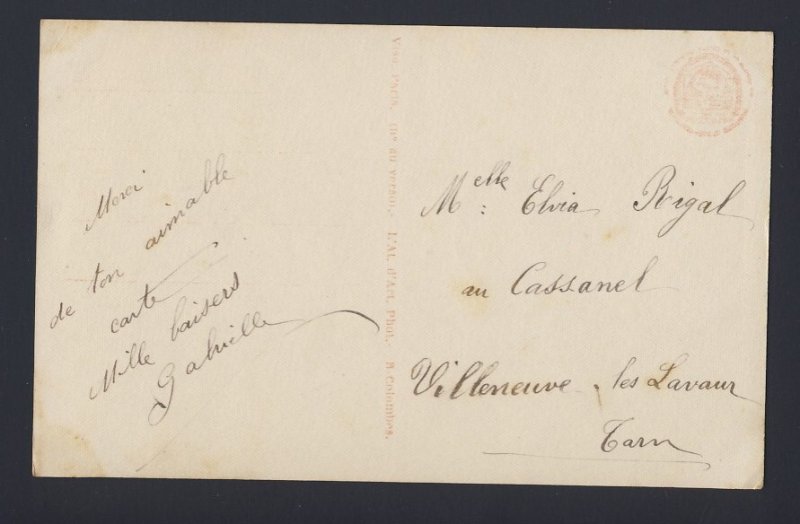 Merci
de ton aimable
carte
Mille baisers
Gabrielle
Visa Paris. No au verso. L'AL. d'Art. Phot. B Colombes.
Melle : Elvia Rigal
au Cassanel
Villeneuve les Lavaur
Tarn